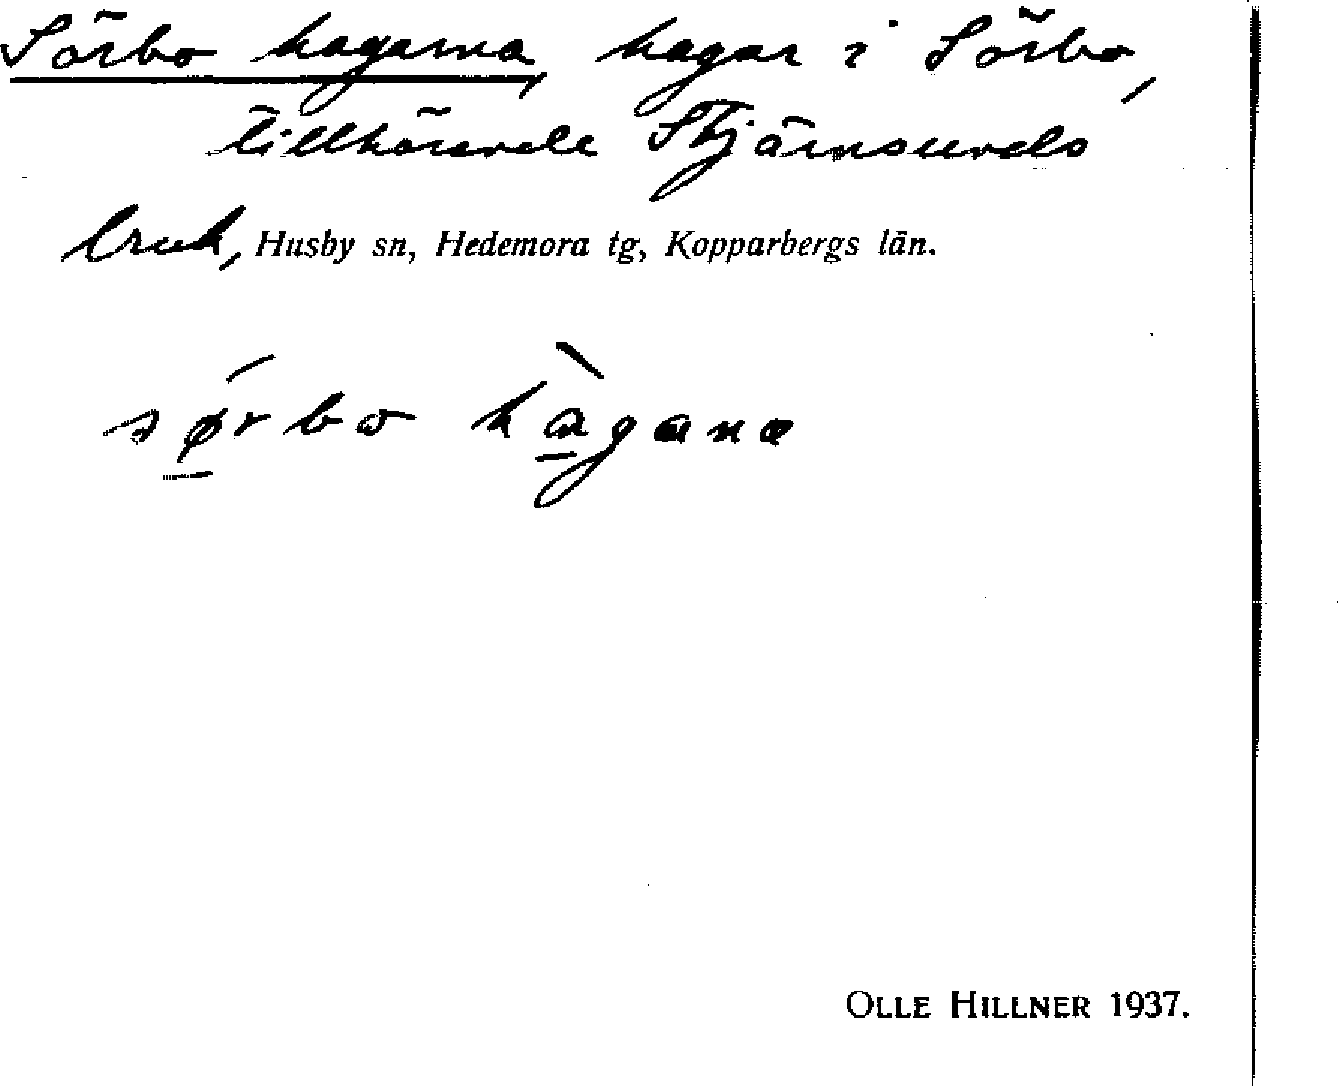 Sörbo hagarna, hagar i Sörbo,
tillhörande Stjärnsunds
bruk, Husby sn, Hedemora tg, Kopparbergs län.
sǿ̲rbo hà̲gana
OLLE HILLNER 1937.